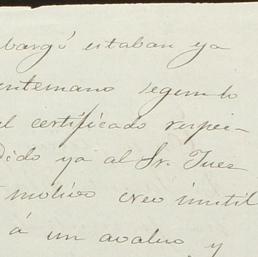 bargó estaban ya
segun lo
el certificado respec-
dido ya al Sr. Juez
motivo creo inutil
á un avaluo, y